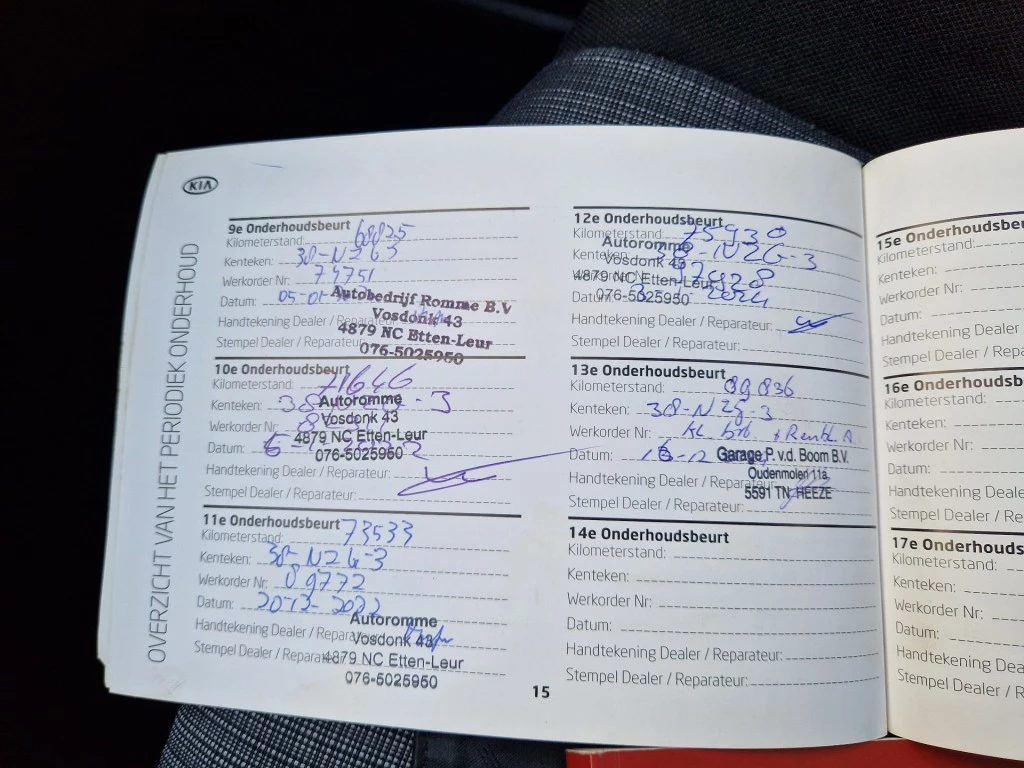 KIA
OVERZICHT VAN HET PERIODIEK ONDERHOUD
9e Onderhoudsbeurt
Kilometerstand: 68825
Kenteken: 38-NZG-3
Werkorder Nr: 74751
Datum: 05-01-
Handtekening Dealer / Reparateur:
Stempel Dealer / Reparateur:
Autobedrijf Romme B.V
Vosdonk 43
4879 NC Etten-Leur
076-5025950
10e Onderhoudsbeurt
Kilometerstand: 71646
Kenteken: 38- -3
Werkorder Nr:
Datum: 6-
Handtekening Dealer / Reparateur:
Stempel Dealer / Reparateur:
Autoromme
Vosdonk 43
4879 NC Etten-Leur
076-5025950
11e Onderhoudsbeurt
Kilometerstand: 73533
Kenteken: 38-NZG-3
Werkorder Nr: 09772
Datum: 20-12-2022
Handtekening Dealer / Reparateur:
Stempel Dealer / Reparateur:
Autoromme
Vosdonk 43
4879 NC Etten-Leur
076-5025950
12e Onderhoudsbeurt
Kilometerstand: 75930
Kenteken: 38-NZG-3
Werkorder Nr:
Datum:
Handtekening Dealer / Reparateur:
Stempel Dealer / Reparateur:
Autoromme
Vosdonk 43
4879 NC Etten-Leur
076-5025950
13e Onderhoudsbeurt
Kilometerstand: 89836
Kenteken: 38-NZG-3
Werkorder Nr: KL brt
Datum: 16-12
Handtekening Dealer / Reparateur:
Stempel Dealer / Reparateur:
Garage P. v.d. Boom B.V.
Oudenmolen 11a
5591 TN HEEZE
14e Onderhoudsbeurt
Kilometerstand:
Kenteken:
Werkorder Nr:
Datum:
Handtekening Dealer / Reparateur:
Stempel Dealer / Reparateur:
15
15e Onderhoudsbeu
Kilometerstand:
Kenteken:
Werkorder Nr:
Datum:
Handtekening Dealer
Stempel Dealer / Repa
16e Onderhoudsb
Kilometerstand:
Kenteken:
Werkorder Nr:
Datum:
Handtekening Dealer
Stempel Dealer / Repa
17e Onderhouds
Kilometerstand:
Kenteken:
Werkorder Nr:
Datum:
Handtekening Deale
Stempel Dealer / R